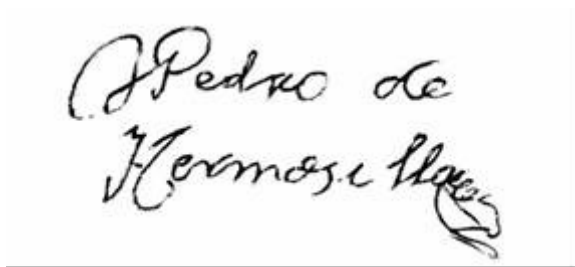 Pedro de
Hermosilla